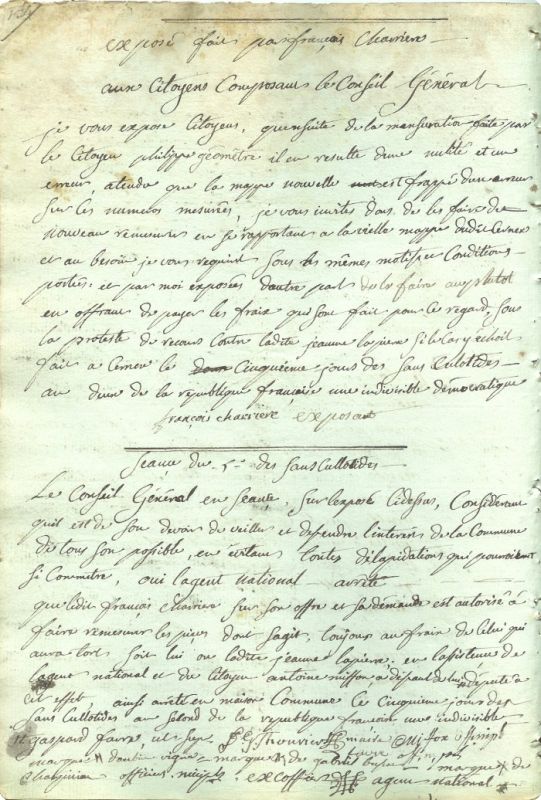 exposé fait par françois charriere
aux Citoyens Composants le Conseil Général
je vous expose Citoyens, quensuite de la mensuration faite par
le Citoyen philippe géometre il en resulte dune nulité et un
erreur, atendu que la mappe nouvelle est frappé dun erreur
sur les numeros mesurés, je vous invites donc de les faire de
nouveau remesurer en se rapportant a la vielle mappe dudit Cernex
et au besoin je vous requiert sous les mêmes motifs et Conditions
portées et par moi exposées dautre part de le faire au plutot
en offrant de payer les frais qui sont fait pour ce regard, sous
la proteste de recours contre ladite jeanne lapierre si le cas y echoit
fait a Cernex le Cinquieme jours des sans Culotides
au deux de la republique francaise une indivisible démocratique
françois charriere exposant
Seance du 5.e des sans Cullotides
Le Conseil Général en Seance, sur lexposé Cidessus, Considerant
quil est de son devoir de veiller et defendre linterets de la Commune
de tous son possible, en evitant toutes délapidations qui pouroient
si Commetre, oui lagent national arrete
que ledit françois charriere sur son offre et sa demande est autorisé à
faire remesurer les pieces dont sagit, toujours au frais de Celui qui
aura tort soit lui ou ladite jeanne lapierre, en lassistence de
lagent national et du Citoyen antoine députe à
cet effet ainsi arrete en maison Commune le Cinquieme jour des
sans Cullotides au second de la republique francaise une indivisible
gaspard favre maire
marque de
officier excoffier agent national